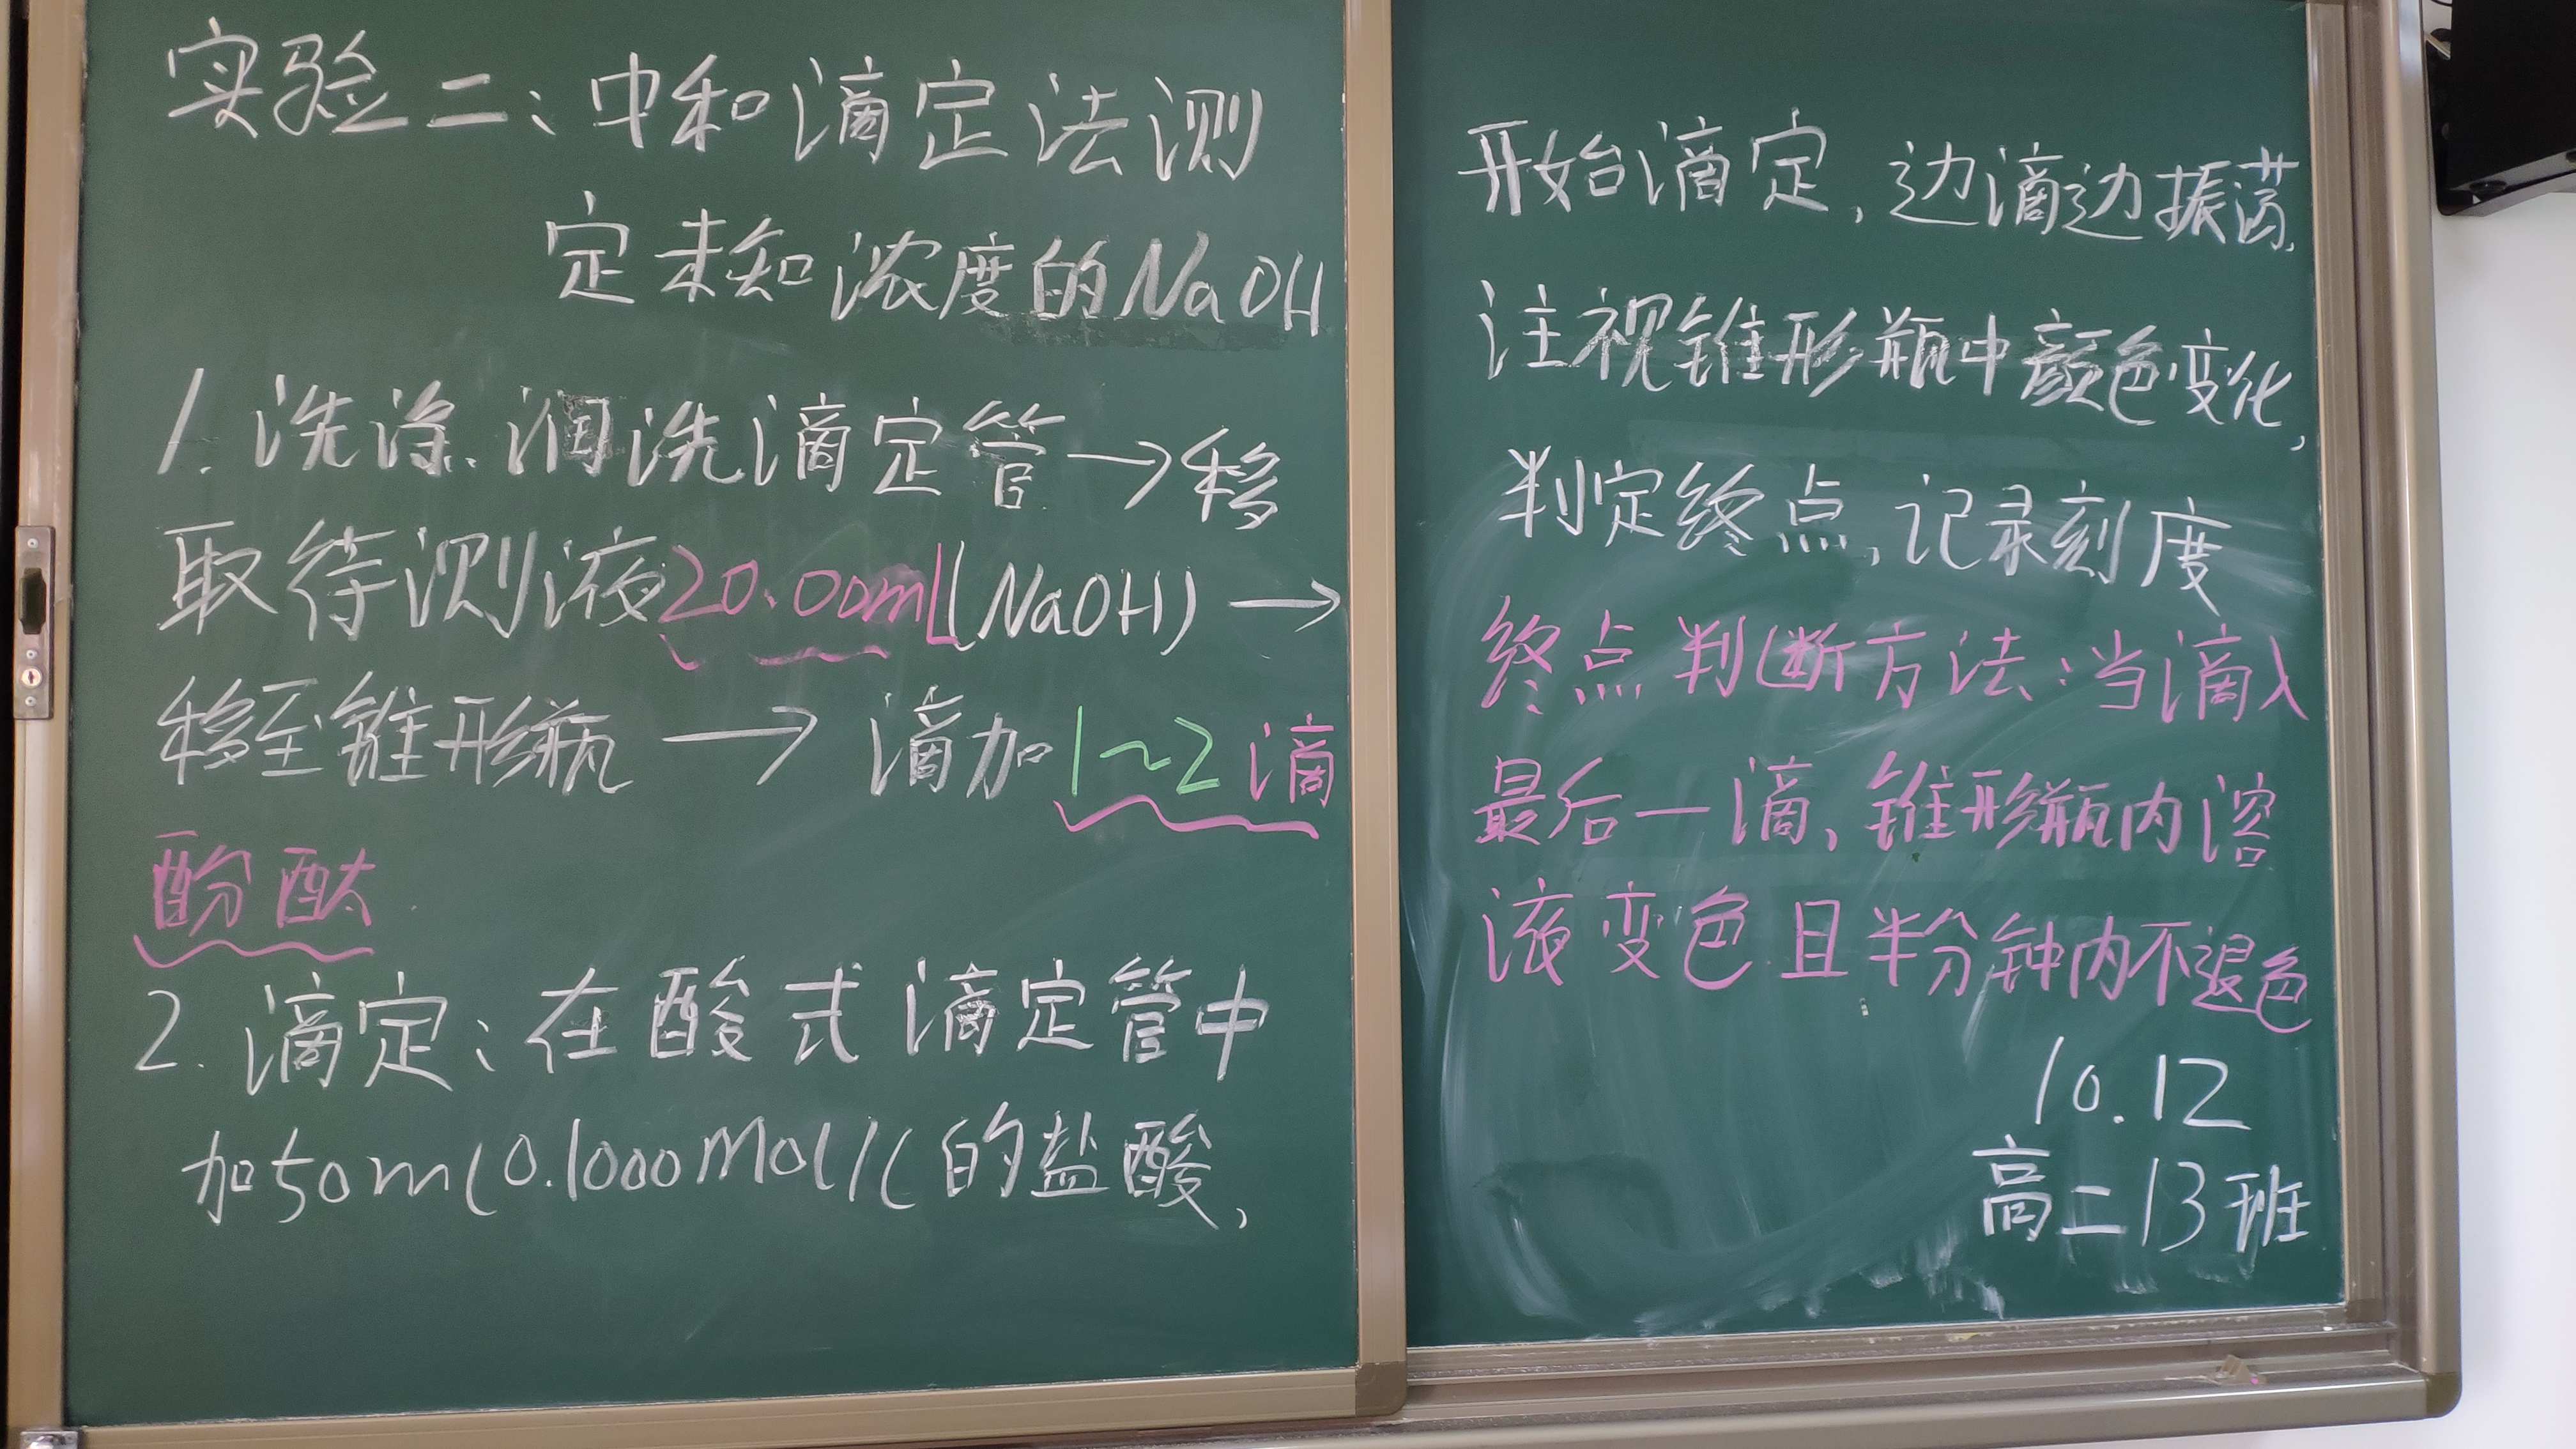 实验二:中和滴定法测
定未知浓度的NaOH
1.洗涤.润洗滴定管→移
取待测液20.00mL(NaOH)→
移至锥形瓶→滴加1~2滴
酚酞.
2.滴定:在酸式滴定管中
加50ml0.1000mol/l的盐酸,
开始滴定,边滴边振荡,
注视锥形瓶中颜色变化,
判定终点,记录刻度
终点判断方法:当滴入
最后一滴,锥形瓶内溶
液变色且半分钟内不退色
10.12
高二13班